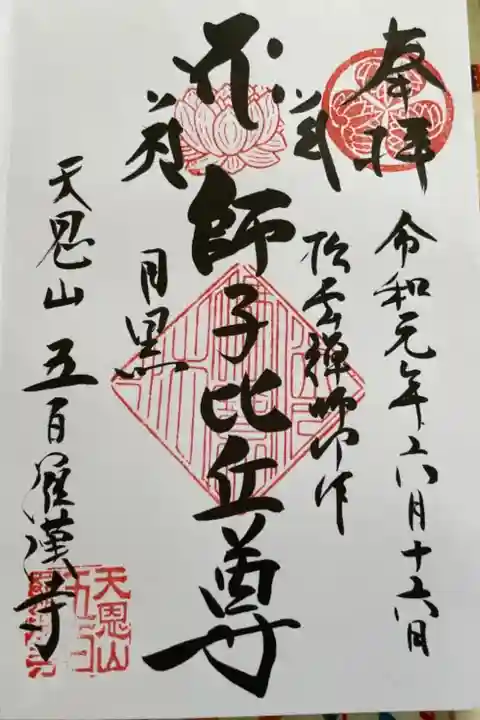 奉拝
令和元年六月十六日
松雲禅師作
師子比丘尊
目黒
天恩山五百羅漢寺
天恩山
五百
羅漢寺